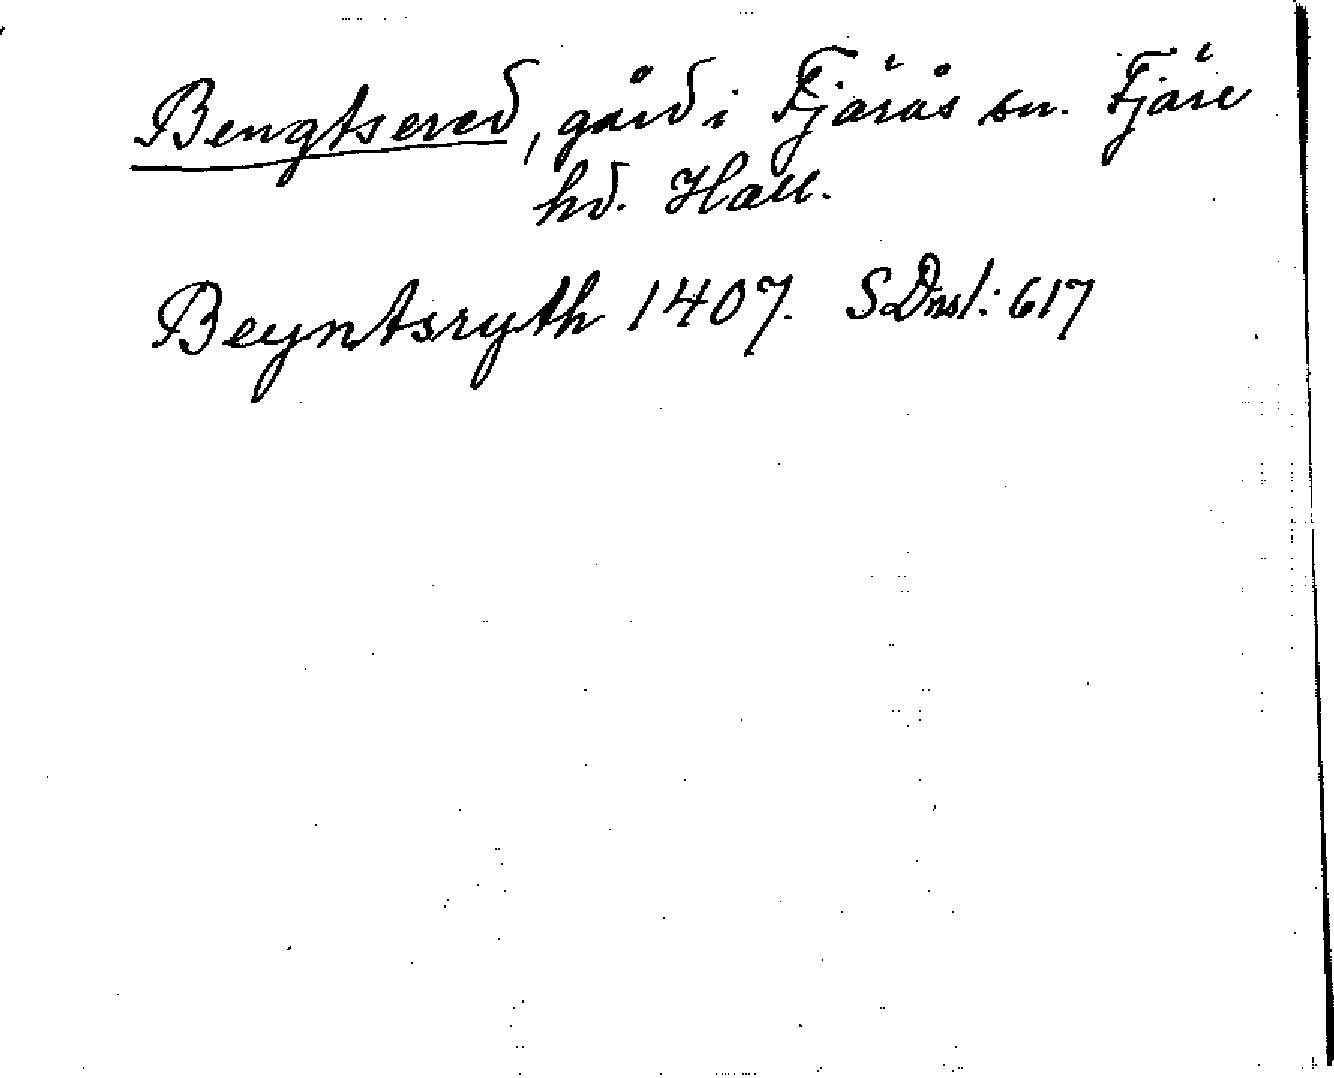 Bengtsered, gård i Fjärås sn. Fjäre
hd. Hall.
Beyntsryth 1407. SDnsl:617